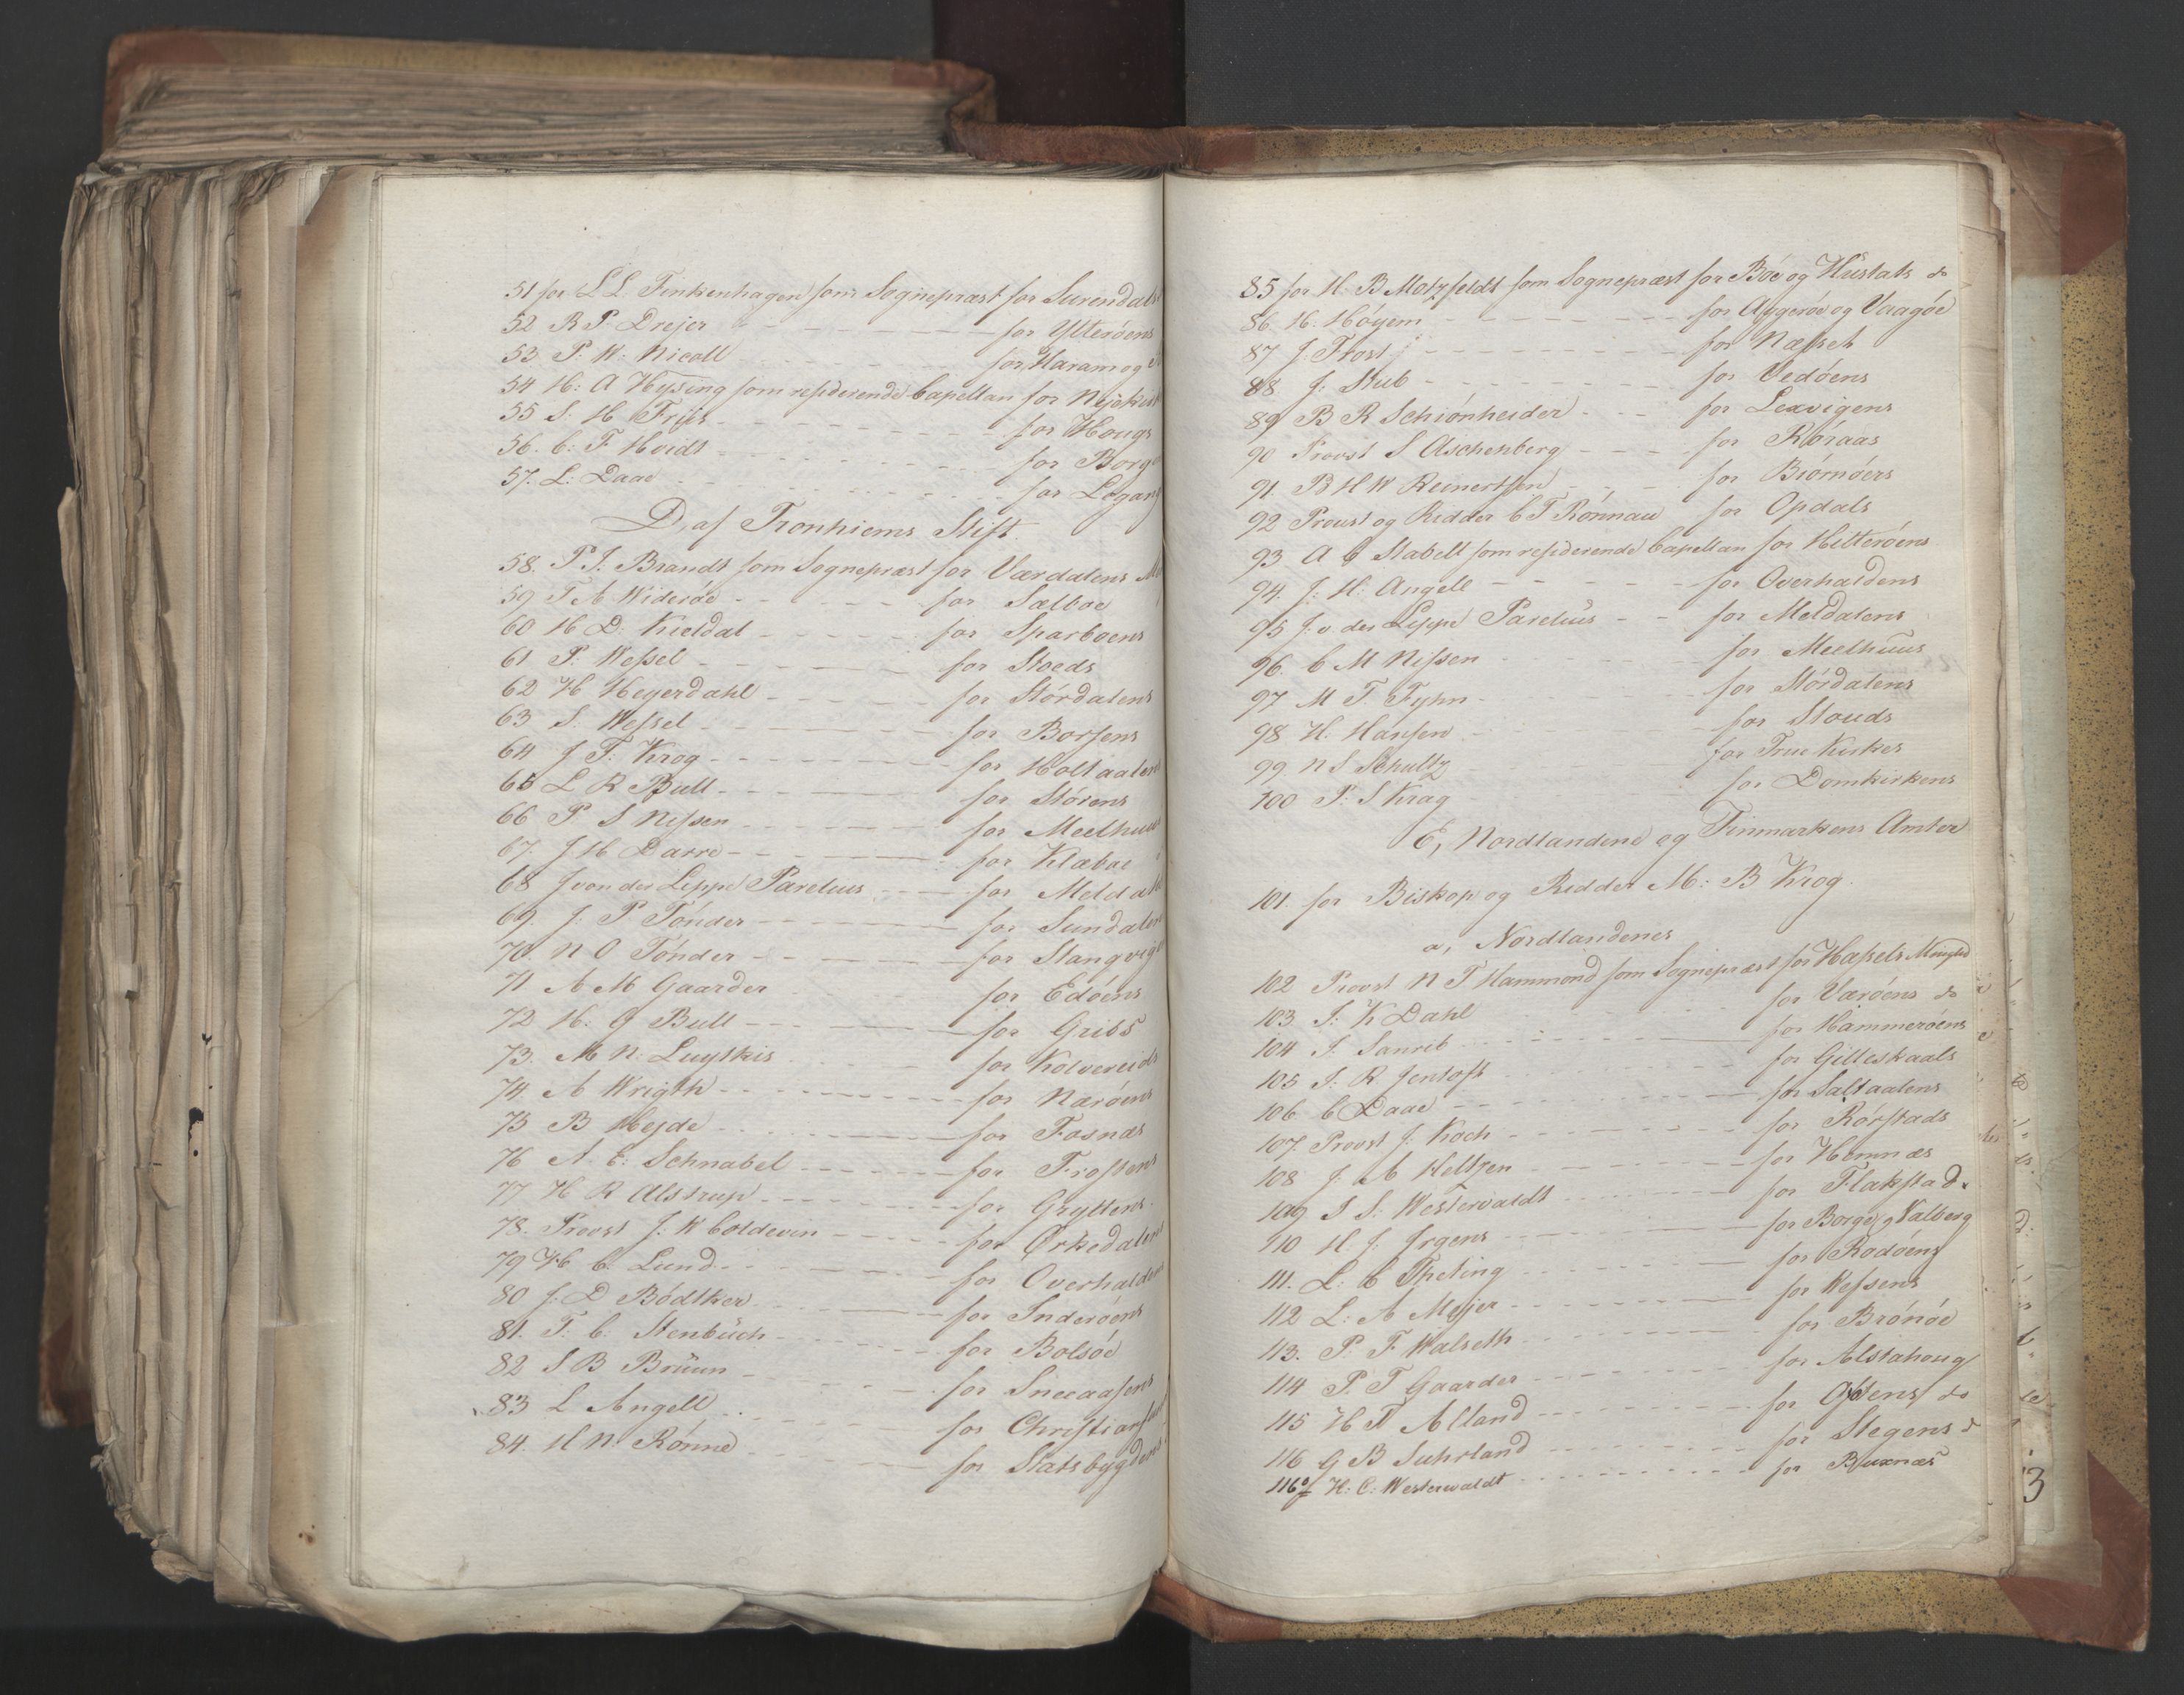 51 for L L. Finkenhagen som Sognepræst for Surendals
52 R P. Drejer - - - for Ytterøens
53 P. W. Nicoll for Haram og
54 H: A Hysing som residerende Capellan for
55 S. H Friis - - - for Hougs
56. C: F. Hvidt - - - for Borg
57. L: Daae - - - for
D, af Tronhiems Stift.
58. P. J. Brandt som Sognepræst for Værdalens
59 T A Widerøe - - - for Sælboe
60 H D: Kieldal - - - for Sparboens
61 P. Wessel - - - for Stoeds
62 H Heyerdahl - - - for Stórdalens
63 S. Wessel - - - for Borsens
64 J F. Krog - - - for Holtaalens
65 L R Bull - - - for Stórens
66 P S Nissen - - - for Meelhuus
67. J H Darre - - - for Klæboe
68 J von der Lippe Parelius - - - for Meldal
69. J. P Tónder - - - for Sundalens
70. N O Tónder - - - for Stangvig
71 A M Gaarder for Edóens
72 H: J Bull - - - for Griss
73. M N: Luytkis for Kolvereids
74. A Wrigth - - - for Nærøens
75 B Hejde - - - for Fosnæs
76 A. E: Schnabel - - - for Frostens
77 H R Alstrup - - - for Gryttens
78. Provst J. W Coldevin - - - for Ørkedalens
79 H C. Lund - - - for Overhaldens
80 J. D Bódtker - - - for Inderóens
81. T. C. Stenbüch - - - for Bolsóe
82 S B Brüun - - - for Sneeaasens
83 L Angell - - - for Christians
84. H N. Rónne - - - for Statsbygdens
85 for H. B Motzfeldt som Sognepræst for Bóe og Hüstads do
86. H. Hóyem - - - for Aggeróe og Vaagóe
87 J. Frost - - - for Næsset
88 J. Stub - - - for Vedóens
89 B R Schiónheider - - - for Lexvigens
90 Provst S Aschenberg - - - for Róraas
91. B H W Reinertsen - - - for Biórnóers
92 Provst og Ridder C F Rónnau for Opdals
93. A C Stabell som residerende Capellan for Hitteróens
94. J. H. Angell - - - for Overhaldens
95 J. v. der Lippe Parelius - - for Meldalens
96. C M Nissen - - - for Meelhuus
97 M T. Fyhn - - - for Stórdalens
98 H. Hansen - - - for Stouds
99 N S Schultz - - - for Frue Kirkes
100 P. S Krag - - - for Domkirkens
E, Nordlandene og Finmarkens Amter
101. for Biskop og Ridder M: B Krog.
a, Nordlandenes
102 Provst N F Hammond som Sognepræst for Hassels Menighed
103 J: K Dahl for Værøens do
104 J. Sanrib - - - for Hammeróens
105 J: R Jentoft - - - for Gilleskaals
106. C Daae - - - for Saltdalens
107. Provst J. Koch - - - for Rórstads
108 J. A Heltzen - - - for Hemnæs
109 S S. Westerwaldt - - - for Flakstad.
110 H. J. Irgens - - - for Borge og Valberg
111. L: C Theting - - - for Rodóens
112 L. A Mejer - - - for Wefsens
113. P. F. Walseth - - - for Brónóe
114 P. T Gaarder - - - for Alstahoug
115 H T Alland - - - for do
116 G B Suhrland - - - for Stegens do
116½ H: C: Westerwaldt - - - for Buxnæs
3